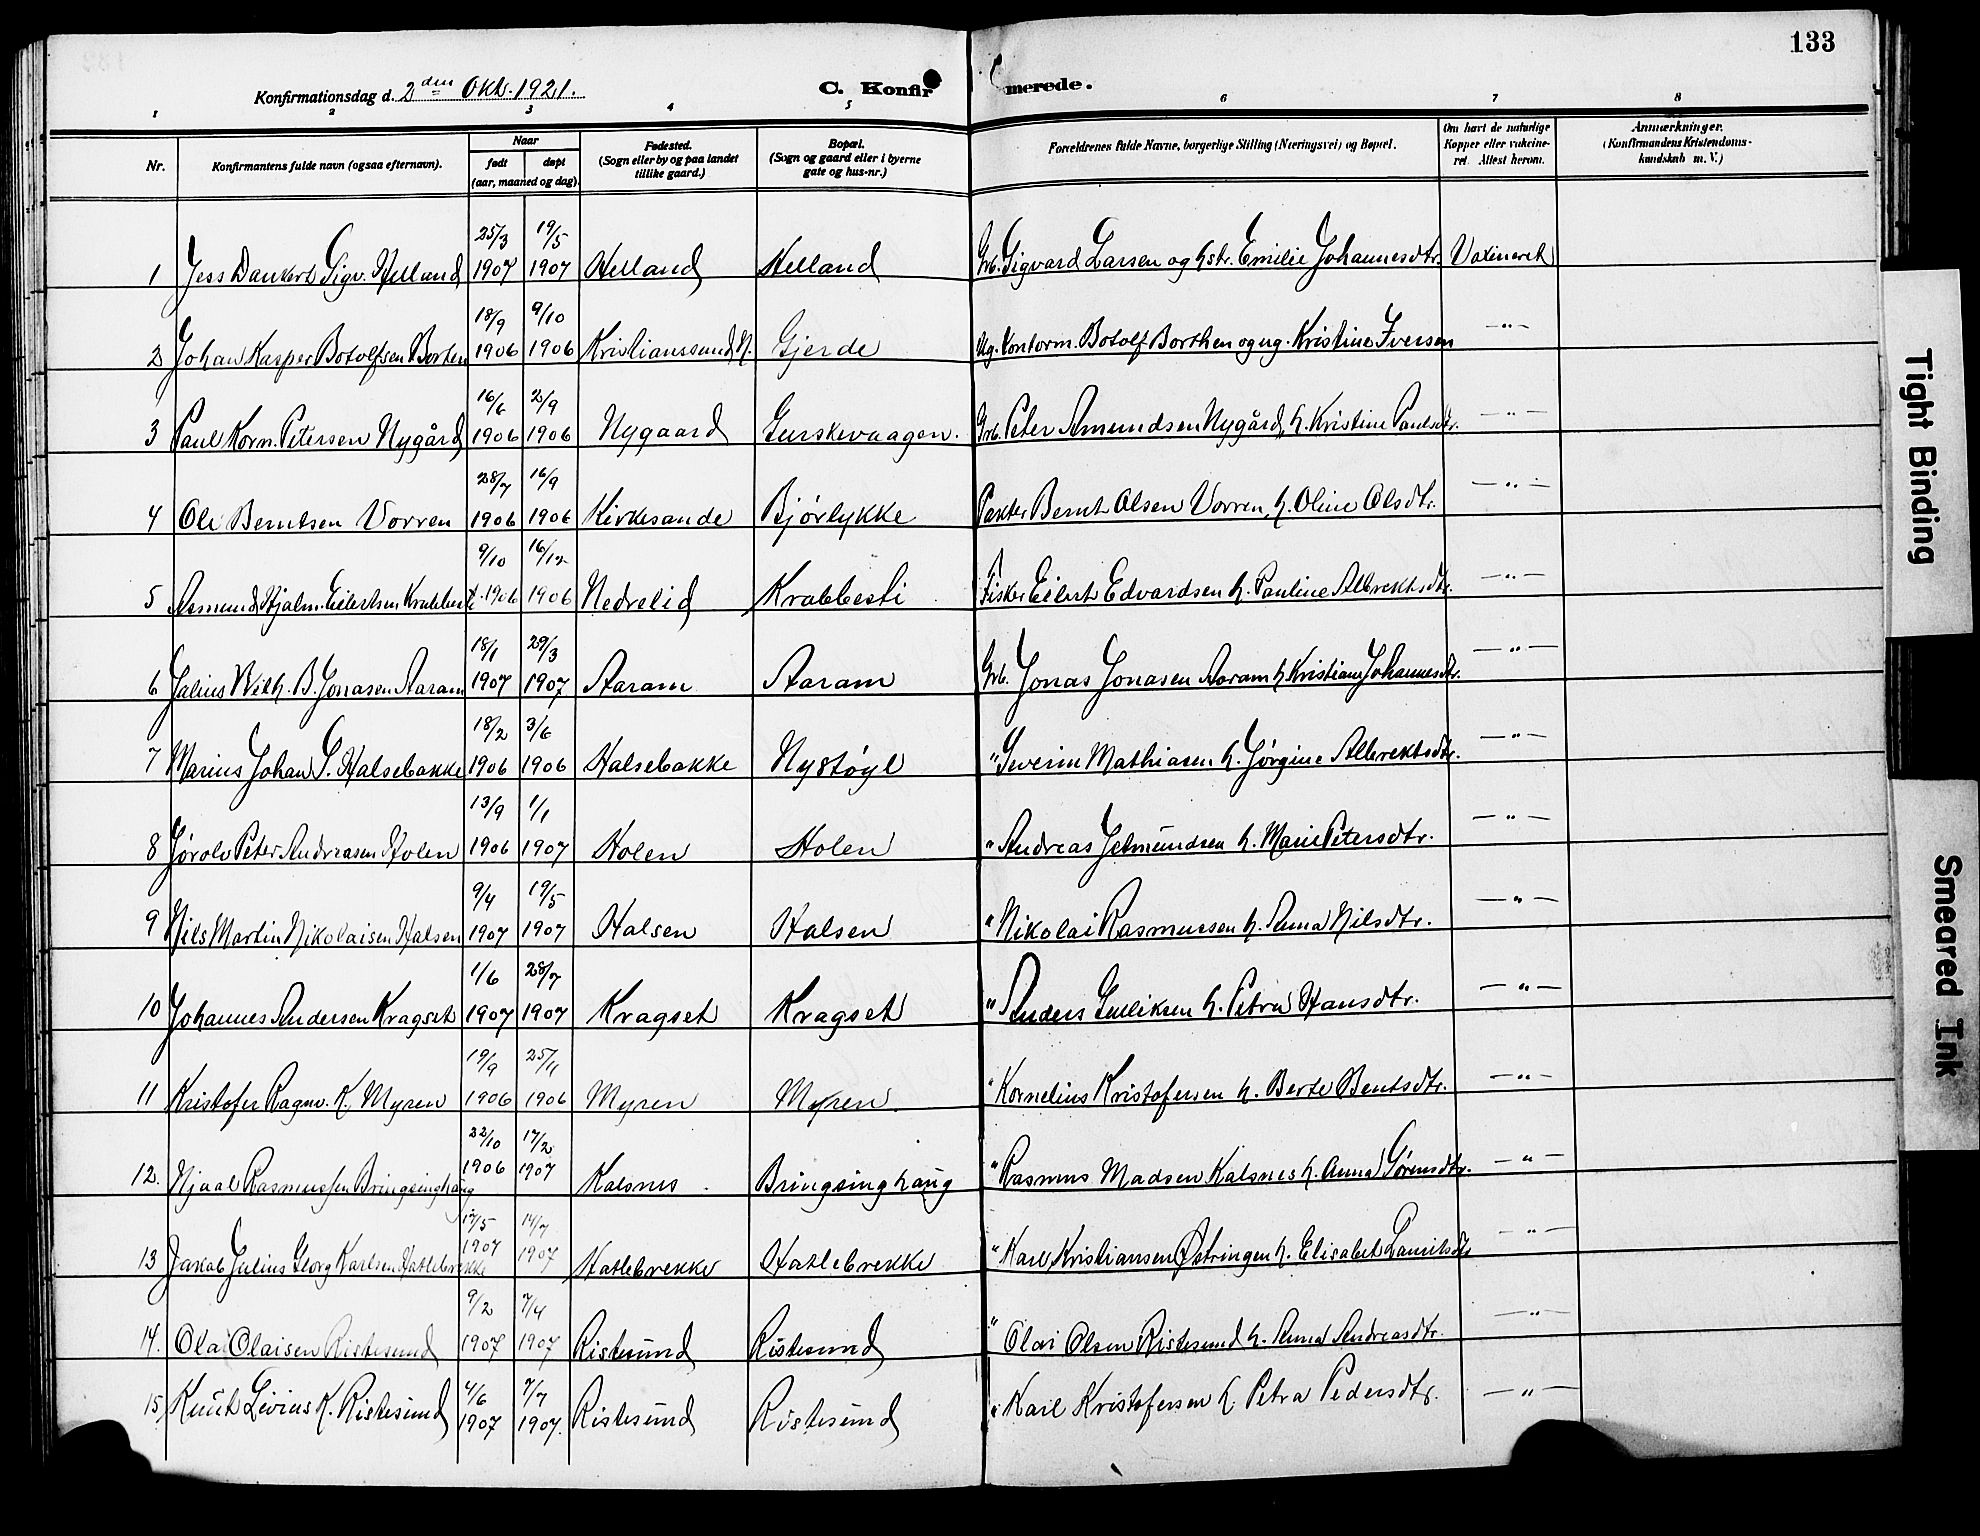 133
Konfirmationsdag d. 2den Okt. 1921.
C. Konfirmerede.
1 2 3 4 5 6 7 8
Nr. Konfirmantens fulde navn (ogsaa efternavn). Naar født døpt (aar, maaned og dag). Fødested. (Sogn eller by og paa landet tillike gaard.) Bopæl. (Sogn og gaard eller i byerne gate og hus-nr.) Forældrenes fulde Navne, borgerlige Stilling (Næringsvei) og Bopæl. Om havt de naturlige Kopper eller vakcineret. Attest herom. Anmærkninger. (Konfirmandens Kristendomskundskab m. V.)
1 Jess Dankert Sigv. Helland 25/3 1907 19/5 1907 Helland Helland Grb. Sigvard Larsen og hstr. Emilie Johannesdtr. Vaxineret
2 Johan Kasper Botolfsen Borthen 18/9 1906 9/10 1906 Kristianssund N. Gjerde Ug. Kontorm. Botolf Borthen og ug. Kristine Iversen —"—
3 Paul Korn. Petersen Nygård 16/6 1906 2/9 1906 Nygaard Gurskevaagen. Grb. Peter Amundsen Nygård, h. Kristine Paulsdtr. —"—
4 Ole Berntsen Vorren 28/7 1906 16/9 1906 Kirkesande Bjørlykke Pakter Bernt Olsen Vorren, h. Oline Olsdtr. —"—
5 Asmund Hjalm. Eilertsen Krabbesti 9/10 1906 16/12 1906 Nedrelid Krabbesti Fisker Eilert Edvardsen h. Pauline Albrektsdtr. —"—
6 Julius Wilh. B. Jonasen Aaram 18/1 1907 29/3 1907 Aaram Aaram Grb. Jonas Jonasen Aaram h. Kristiane Johannesdtr. —"—
7 Marius Johan S. Halsebakke 18/2 1906 3/6 1906 Halsebakke Nystøyl " Severin Mathiasen h. Jørgine Albrektsdtr. —"—
8 Jørolv Peter Andreasen Holen 13/9 1906 1/1 1907 Holen Holen " Andreas Jetmundsen h. Marie Petersdtr. —"—
9 Nils Martin Nikolaisen Halsen 9/4 1907 19/5 1907 Halsen Halsen " Nikolai Rasmussen h. Anna Nilsdtr. —"—
10 Johannes Andersen Kragset 1/6 1907 28/7 1907 Kragset Kragset " Anders Gulliksen h. Petra Hansdtr. —"—
11 Kristofer Ragnv. K. Myren 19/9 1906 25/11 1906 Myren Myren. " Kornelius Kristofersen h. Berte Bentsdtr. —"—
12. Njaal Rasmussen Bringsinghaug 22/10 1906 17/2 1907 Kalsnes Bringsinghaug " Rasmus Madsen Kalsnes h. Anna Sørensdtr. —"—
13 Jakob Julius Georg Karlsen Hatlebrekke 12/5 1907 14/7 1907 Hatlebrekke Hatlebrekke " Karl Kristiansen Østringen h. Elisabet Lauritsdtr —"—
14. Ola Olaisen Ristesund 9/2 1907 7/4 1907 Ristesund Ristesund " Olai Olsen Ristesund h. Anna Andreasdtr. —"—
15 Knut Livius K. Ristesund 4/6 1907 7/7 1907. Ristesund Ristesund " Karl Kristofersen h. Petra Pedersdtr. —"—
Tight Binding
Smeared Ink